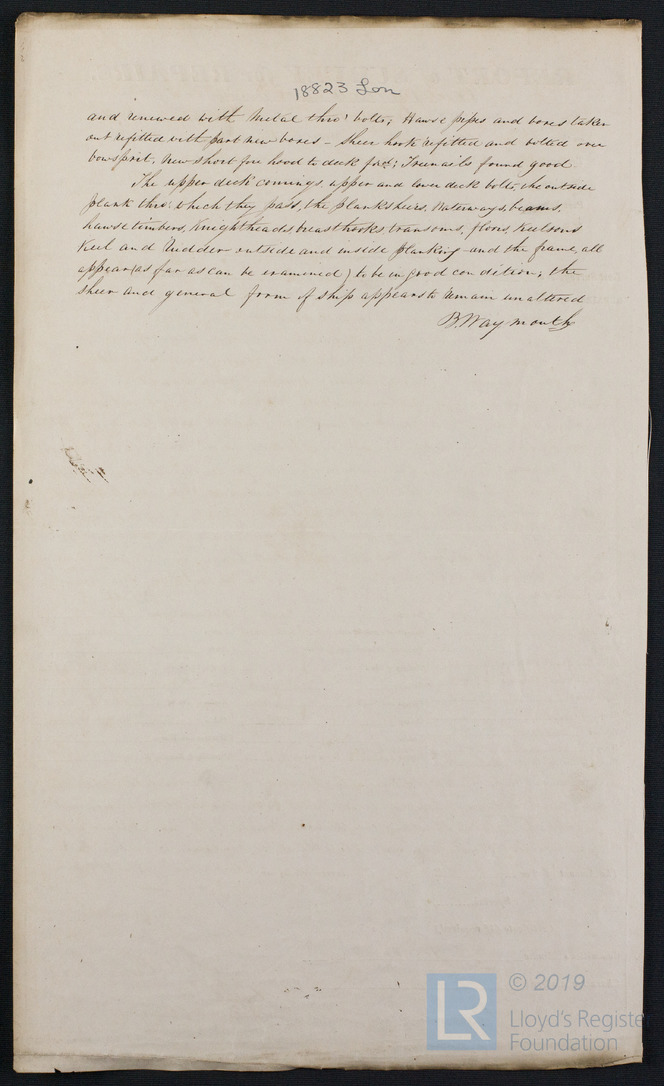 18823 Lon
and renewed with metal thro' bolts; Hawse pipes and bores taken
out refitted with part new bores - Sheer hook refitted and bolted over
bowsprit, New short fore hood to deck ford; Treenails found good
The upper deck comings, upper and lower deck bolts, the outside
plank thro' which they pass, the planksheers, Waterways, beams,
hawse timbers, Knightheads breasthooks transoms, floors, keelsons
Keel and Rudder outside and inside planking and the frame, all
appear (as far as can be examined) to be in good condition; the
sheer and general form of ship appears to remain unaltered
B. Waymouth
© 2019
LR
Lloyd's Register
Foundation